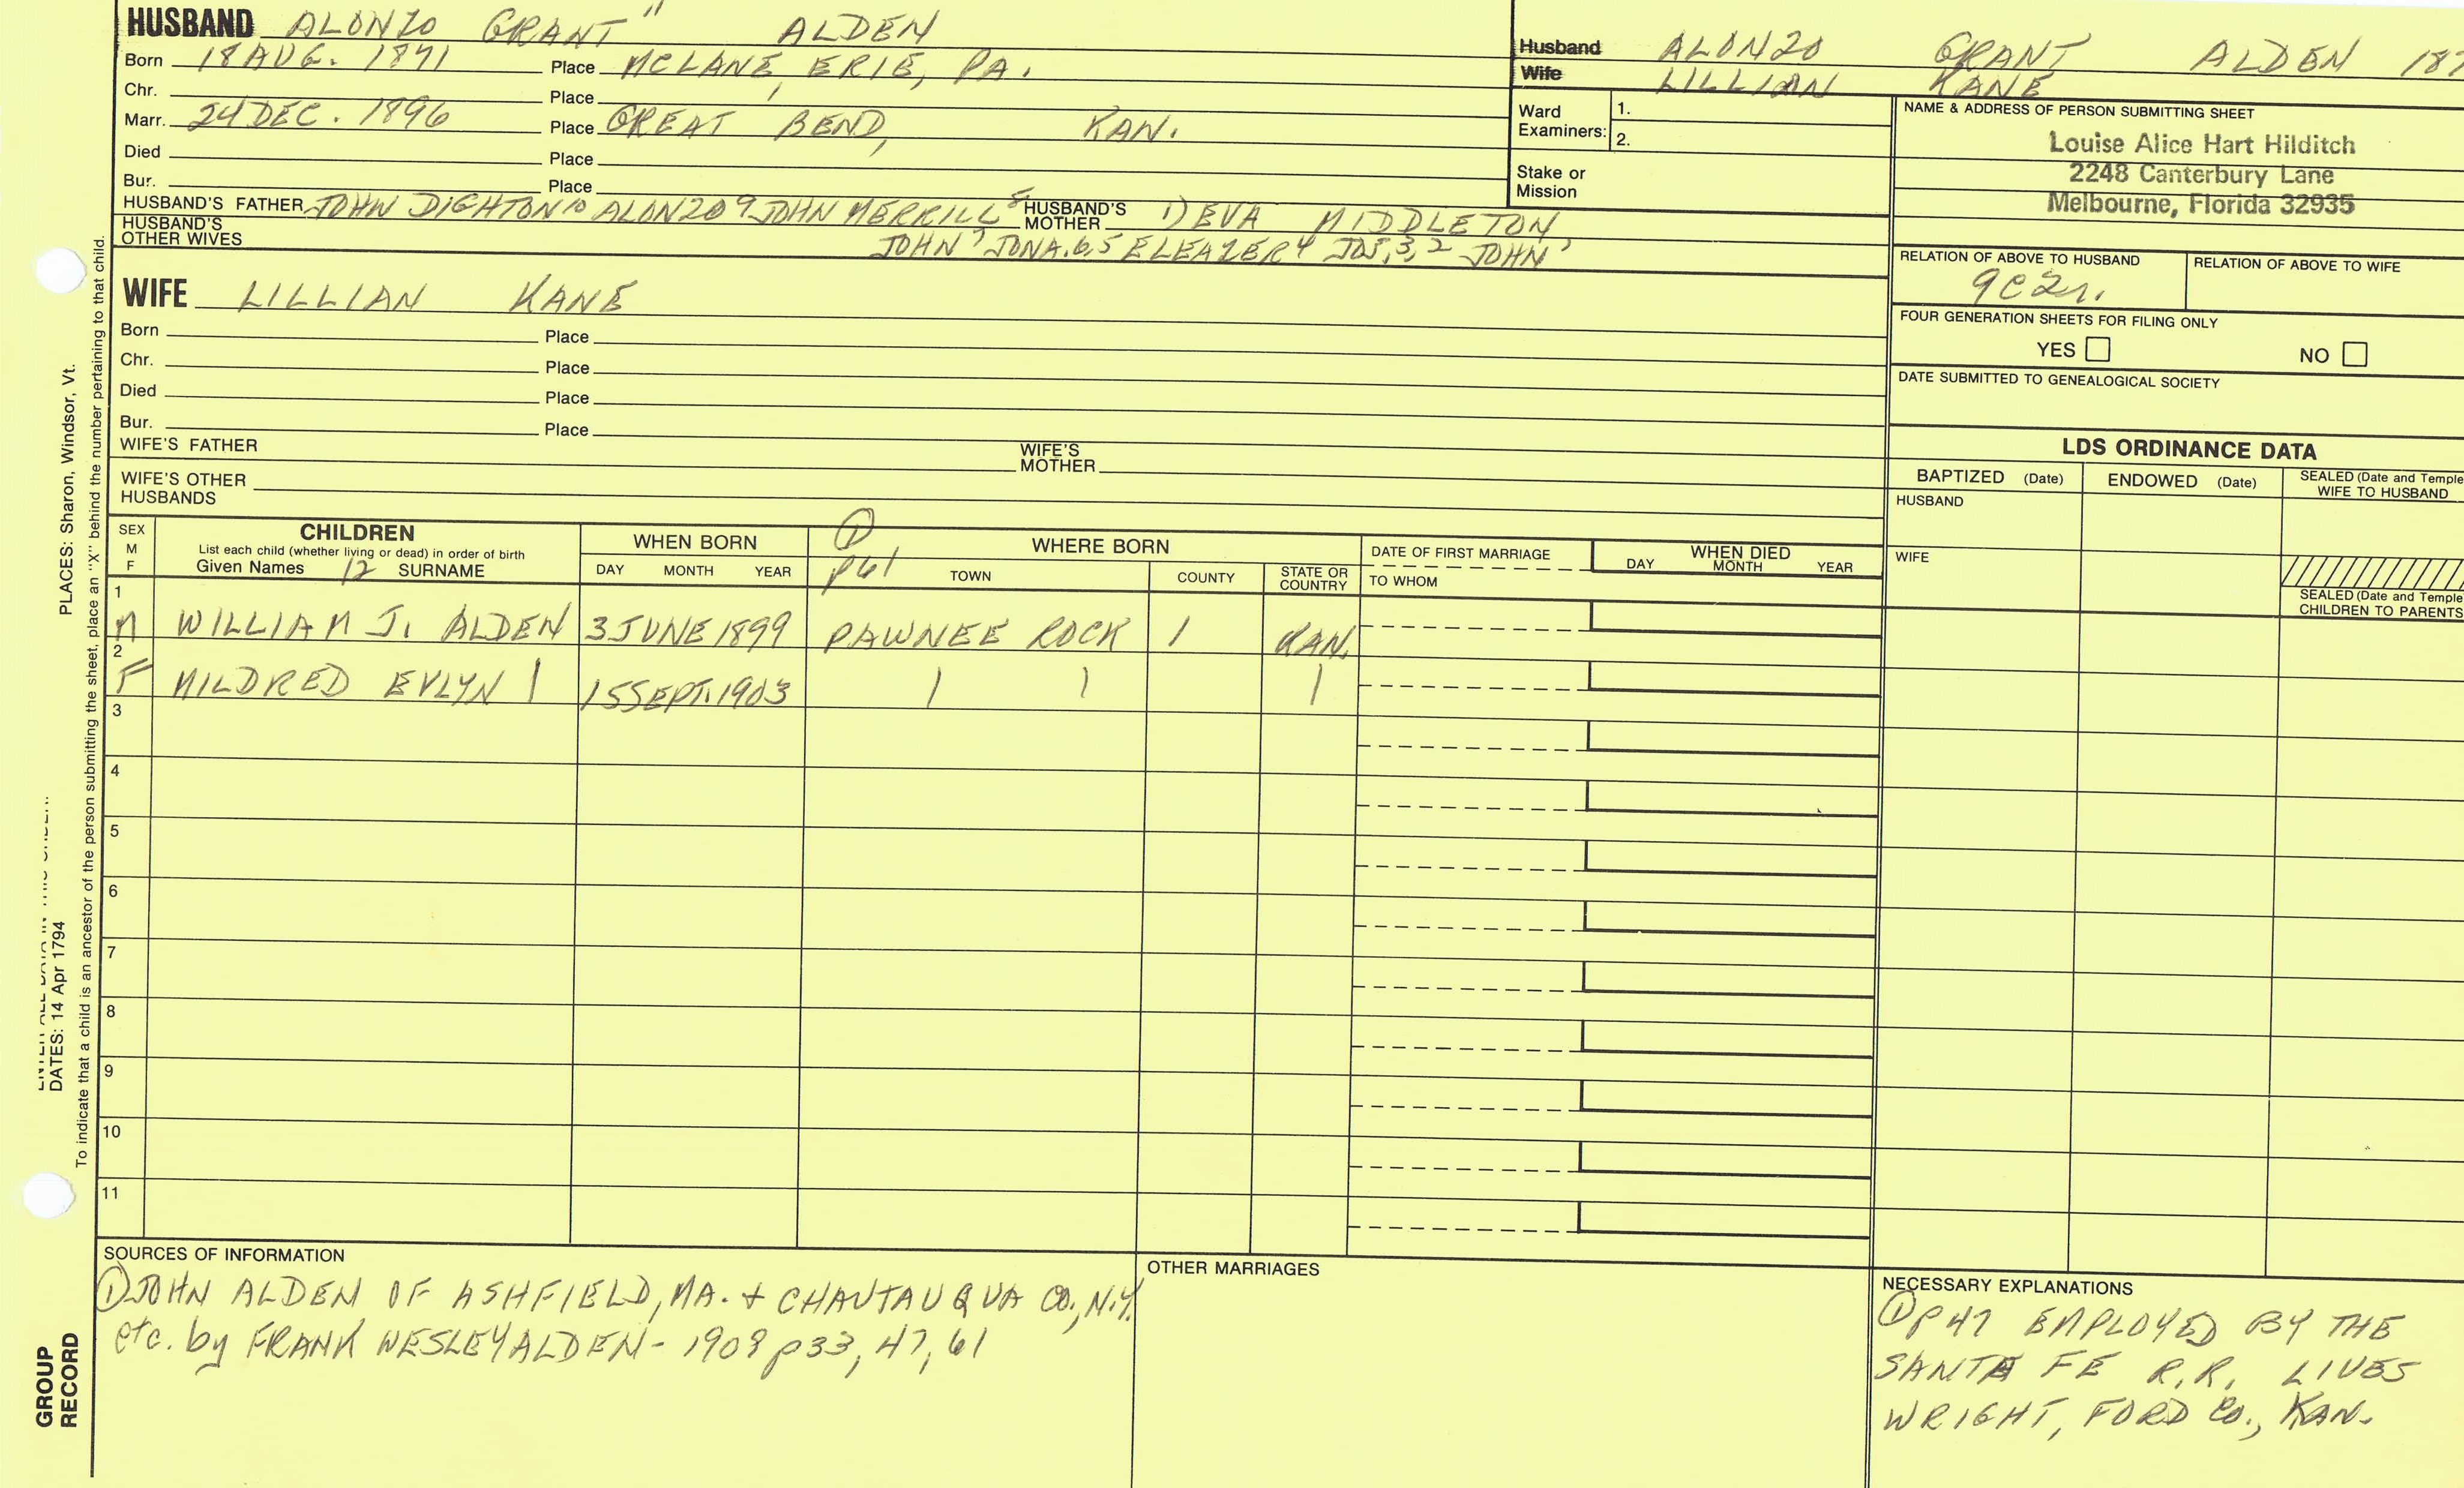 HUSBAND ALONZO GRANT 11 ALDEN
Born 18 AUG. 1871 Place MCLANE, ERIE, PA.
Chr. Place
Marr. 24 DEC. 1896 Place GREAT BEND, KAN.
Died Place
Bur. Place
HUSBAND'S FATHER JOHN DIGHTON 10 ALONZO 9 JOHN MERRILL 8 HUSBAND'S MOTHER 1) EVA MIDDLETON
HUSBAND'S OTHER WIVES JOHN 7 JONA. 6,5 ELEAZER 4 JOS. 3,2 JOHN 1
WIFE LILLIAN KANE
Born Place
Chr. Place
Died Place
Bur. Place
WIFE'S FATHER WIFE'S MOTHER
WIFE'S OTHER HUSBANDS
Husband ALONZO GRANT ALDEN 187
Wife LILLIAN KANE
Ward Examiners: 1.
2.
Stake or Mission
NAME & ADDRESS OF PERSON SUBMITTING SHEET
Louise Alice Hart Hilditch
2248 Canterbury Lane
Melbourne, Florida 32935
RELATION OF ABOVE TO HUSBAND RELATION OF ABOVE TO WIFE
9C2r.
FOUR GENERATION SHEETS FOR FILING ONLY
YES NO
DATE SUBMITTED TO GENEALOGICAL SOCIETY
LDS ORDINANCE DATA
BAPTIZED (Date) ENDOWED (Date) SEALED (Date and Temple
WIFE TO HUSBAND
HUSBAND
WIFE
SEALED (Date and Temple
CHILDREN TO PARENTS
SEX M F
CHILDREN
List each child (whether living or dead) in order of birth
Given Names 12 SURNAME
WHEN BORN
DAY MONTH YEAR
① p61
WHERE BORN
TOWN COUNTY STATE OR COUNTRY
DATE OF FIRST MARRIAGE
TO WHOM
WHEN DIED
DAY MONTH YEAR
1
M WILLIAM J. ALDEN 3 JUNE 1899 PAWNEE ROCK / KAN.
2
F MILDRED EVLYN | 15 SEPT. 1903 | | |
3
4
5
6
7
8
9
10
11
SOURCES OF INFORMATION
① JOHN ALDEN OF ASHFIELD, MA. + CHAUTAUQUA CO., N.Y.
etc. by FRANK WESLEY ALDEN - 1909 p33, 47, 61
OTHER MARRIAGES
NECESSARY EXPLANATIONS
① p47 EMPLOYED BY THE
SANTA FE R.R. LIVES
WRIGHT, FORD Co., KAN.
PLACES: Sharon, Windsor, Vt.
DATES: 14 Apr 1794
To indicate that a child is an ancestor of the person submitting the sheet, place an "X" behind the number pertaining to that child.
GROUP
RECORD